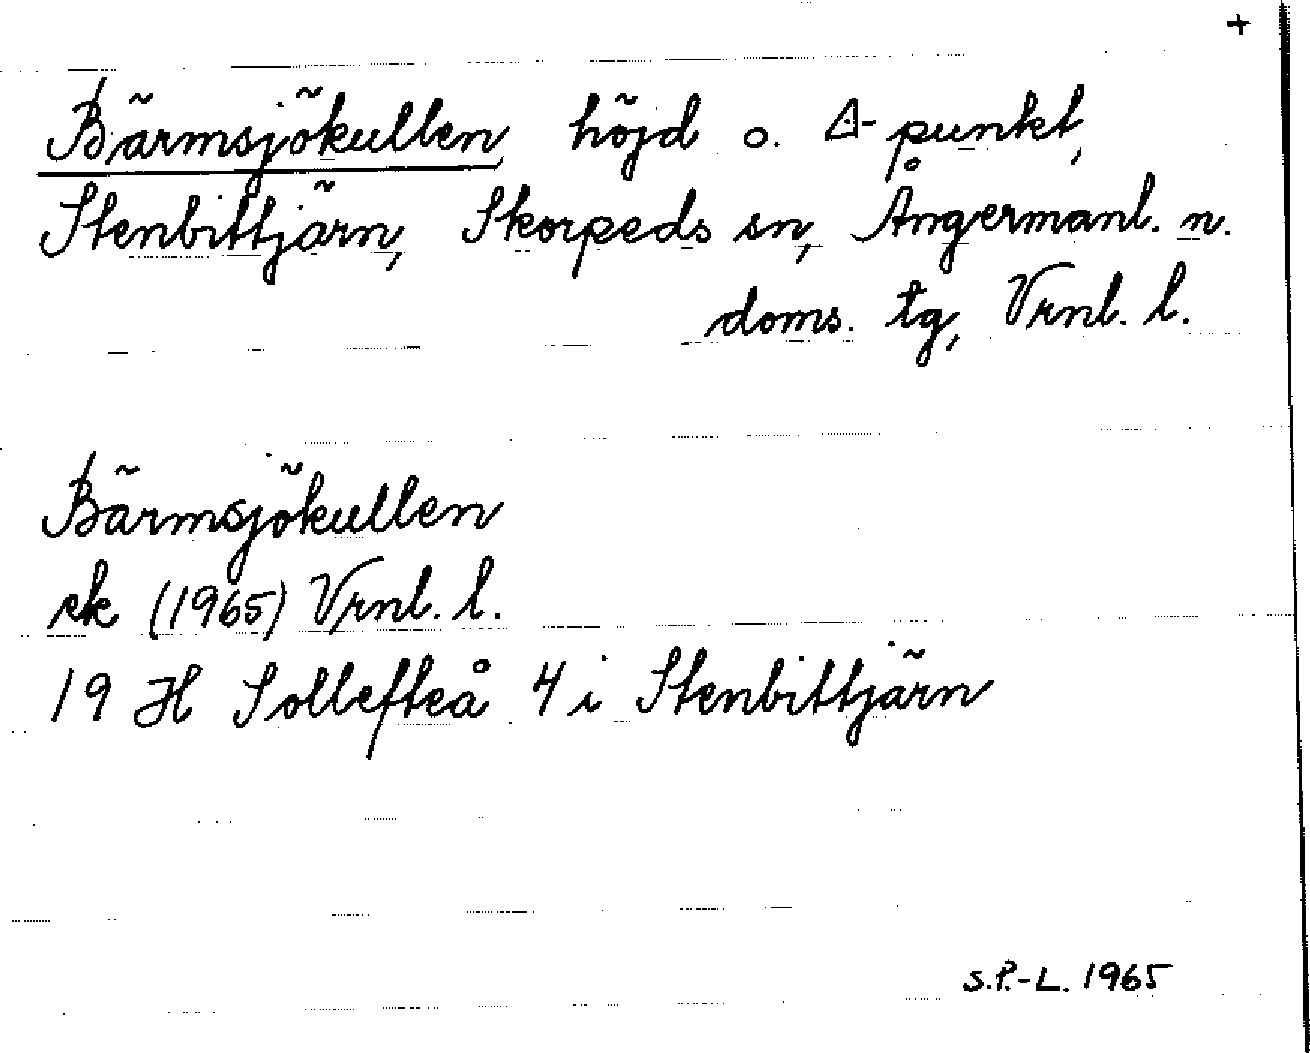 +
Bärmsjökullen, höjd o. △-punkt,
Stenbittjärn, Skorpeds sn, Ångermanl. n.
doms. tg, Vrnl. l.
Bärmsjökullen
ek (1965) Vrnl. l.
19 H Sollefteå 4 i Stenbittjärn
S.P.-L. 1965